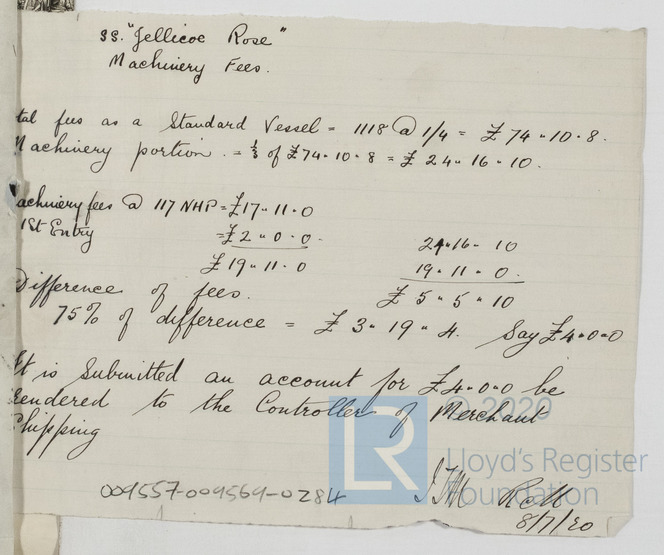 SS. "Jellicoe Rose"
Machinery Fees.
tal fees as a Standard Vessel = 1118 @ 1/4 = £74-10-8.
Machinery portion. = ⅓ of £74-10-8 = £24-16-10.
achinery fees @ 117 NHP = £17-11-0
1st Entry = £2-0-0.
£19-11-0
24-16-10
19-11-0.
£5-5-10
Difference of fees.
75% of difference = £3-19-4. Say £4-0-0
It is submitted an account for £4-0-0 be
rendered to the Controller of Merchant
Shipping
009557-009569-0284
8/7/20
© 2020
LR
Lloyd's Register
Foundation